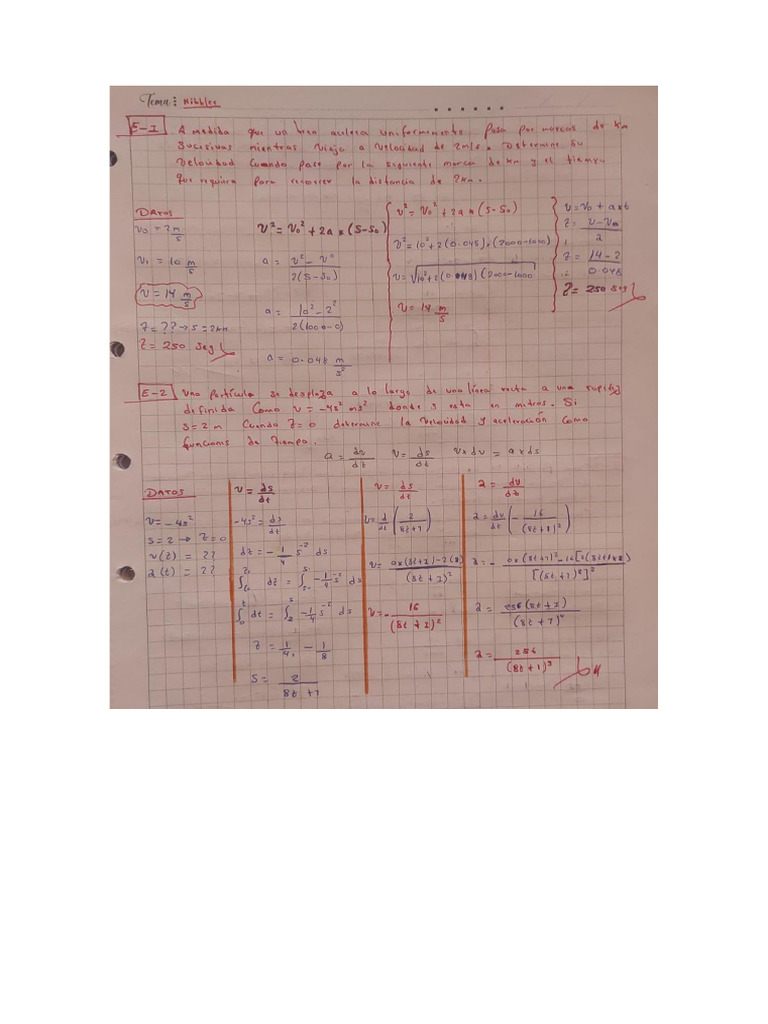 Tema: Hibbler
E-1 A medida que un tren acelera uniformemente Pasa por marcas de km
sucesivas mientras viaja a velocidad de 2m/s. Determine su
velocidad cuando pase por la siguiente marca de km y el tiempo
que requiere para recorrer la distancia de 2km.
DATOS
v₀ = 2 m/s
v₁ = 10 m/s
v = 14 m/s
t = ?? → s = 2km
t = 250 seg
v² = v₀² + 2a × (s-s₀)
a = v² - v° / 2(s-s₀)
a = 10² - 2² / 2(1000-0)
a = 0.048 m/s²
v² = v₀² + 2a × (s-s₀)
v² = 10² + 2(0.048) × (2000-1000)
v = √10² + 2(0.048)(2000-1000
v = 14 m/s
v = v₀ + a×t
t = v - v₀ / a
t = 14 - 2 / 0.048
t = 250 seg
E-2 Una partícula se desplaza a lo largo de una línea recta a una
definida como v = -4s² m/s² donde s esta en metros. Si
s = 2 m cuando t = 0 determine la velocidad y aceleración como
funciones de tiempo.
a = dv/dt v = ds/dt v×dv = a×ds
DATOS
v = -4s²
s = 2 → t = 0
v(t) = ??
a(t) = ??
v = ds/dt
-4s² = ds/dt
dt = -1/4 s⁻² ds
∫ dt = ∫ -1/4 s⁻² ds
∫₀ᵗ dt = ∫₂ˢ -1/4 s⁻² ds
t = 1/4s - 1/8
s = 2 / 8t + 1
v = ds/dt
v = d/dt (2 / 8t+1)
v = 0×(8t+1) - 2(8) / (8t+1)²
v = - 16 / (8t+1)²
a = dv/dt
a = dv/dt (- 16 / (8t+1)²)
a = - 0×(8t+1)² - 16[2(8t+1×8) / [(8t+1)²]²
a = 256(8t+1) / (8t+1)⁴
a = 256 / (8t+1)³